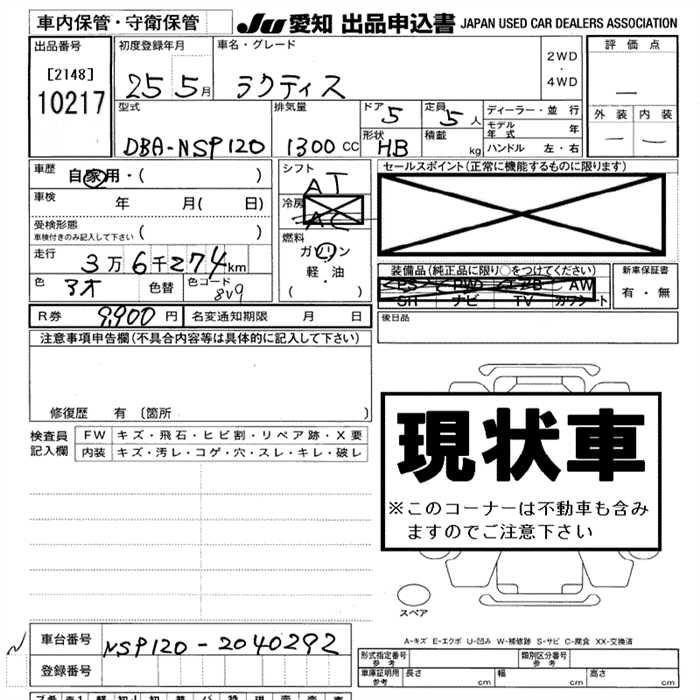 車内保管・守衛保管
JU 愛知 出品申込書 JAPAN USED CAR DEALERS ASSOCIATION
出品番号
[2148]
10217
初度登録年月
25 5月
車名・グレード
ラクティス
2WD
・
4WD
評価点
―
外装 内装
― ―
型式
DBA-NSP120
排気量
1300 CC
ドア 5
形状 HB
定員 5 人
積載 kg
ディーラー・並行
モデル年式 年
ハンドル 左・右
車歴 自家用・( )
車検 年 月( 日)
受検形態
車検付きのみ記入して下さい ( )
走行 3万6千274km
色 アオ 色替 色コード 8V9
シフト
AT
冷房
AC
燃料
ガソリン
軽・油
( )
セールスポイント(正常に機能するものに限ります)
装備品(純正品に限り○をつけてください)
PS PWD エアB AW
SR ナビ TV カワシート
新車保証書
有・無
R券 9,900 円 名変通知期限 月 日
後日品
注意事項申告欄(不具合内容等は具体的に記入して下さい)
修復歴 有 〔箇所 〕
検査員記入欄
FW キズ・飛石・ヒビ割・リペア跡・X要
内装 キズ・汚レ・コゲ・穴・スレ・キレ・破レ
現状車
※このコーナーは不動車も含み
ますのでご注意下さい
スペア
A-キズ E-エクボ U-凹み W-補修跡 S-サビ C-腐食 XX-交換済
車台番号 NSP120-2040292
登録番号
形式指定番号 参考
類別区分番号 参考
車庫証明用 参考 長さ cm 幅 cm 高さ cm